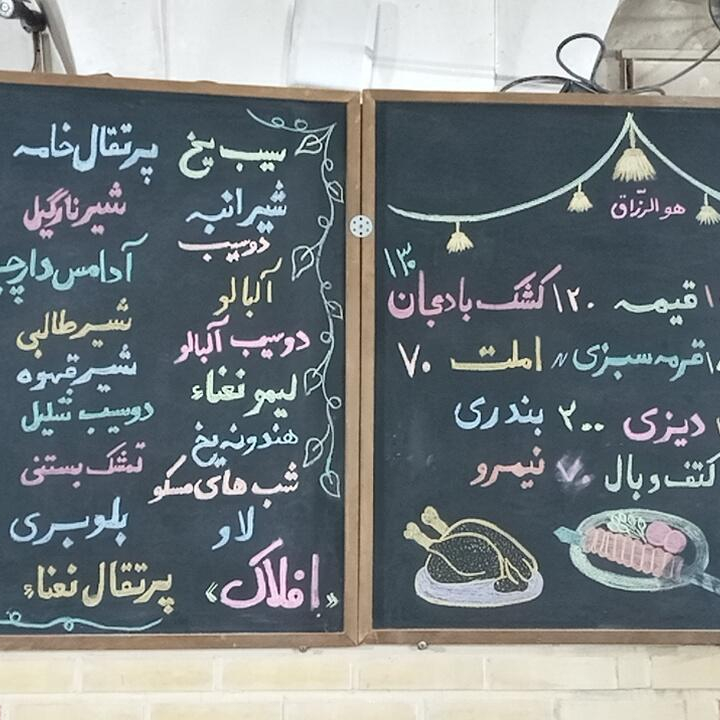 هو الرزّاق
قیمه ۱۲۰ کشک بادمجان ۱۳۰
قرمه سبزی ״ املت ۷۰
دیزی ۲۰۰ بندری
کتف و بال ۷۰ نیمرو
سیب یخ
شیر انبه
دوسیب
آلبالو
دوسیب آلبالو
لیمو نعناء
هندونه یخ
شب های مسکو
لاو
«افلاک»
پرتقال خامه
شیر نارگیل
آدامس دارچ
شیر طالبی
شیر قهوه
دوسیب شلیل
تمشک بستنی
بلوبری
پرتقال نعناء